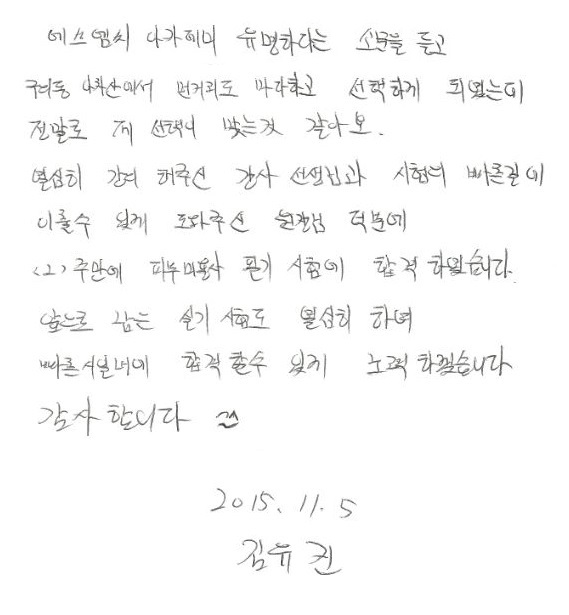 에스엠씨 아카데미 유명하다는 소문을 듣고
먼거리도 마다하고 선택하게 되었는데
정말로 제 선택이 맞는것 같아요.
열심히 강의 해주신 강사 선생님과 시험의 빠른길에
이를수 있게 도와주신 원장님 덕분에
<2>주만에 피부미용사 필기 시험에 합격 하였습니다.
앞으로 남은 실기 시험도 열심히 하여
빠른시일내에 합격 할수 있게 노력 하겠습니다
감사 합니다
2015. 11. 5
김유권